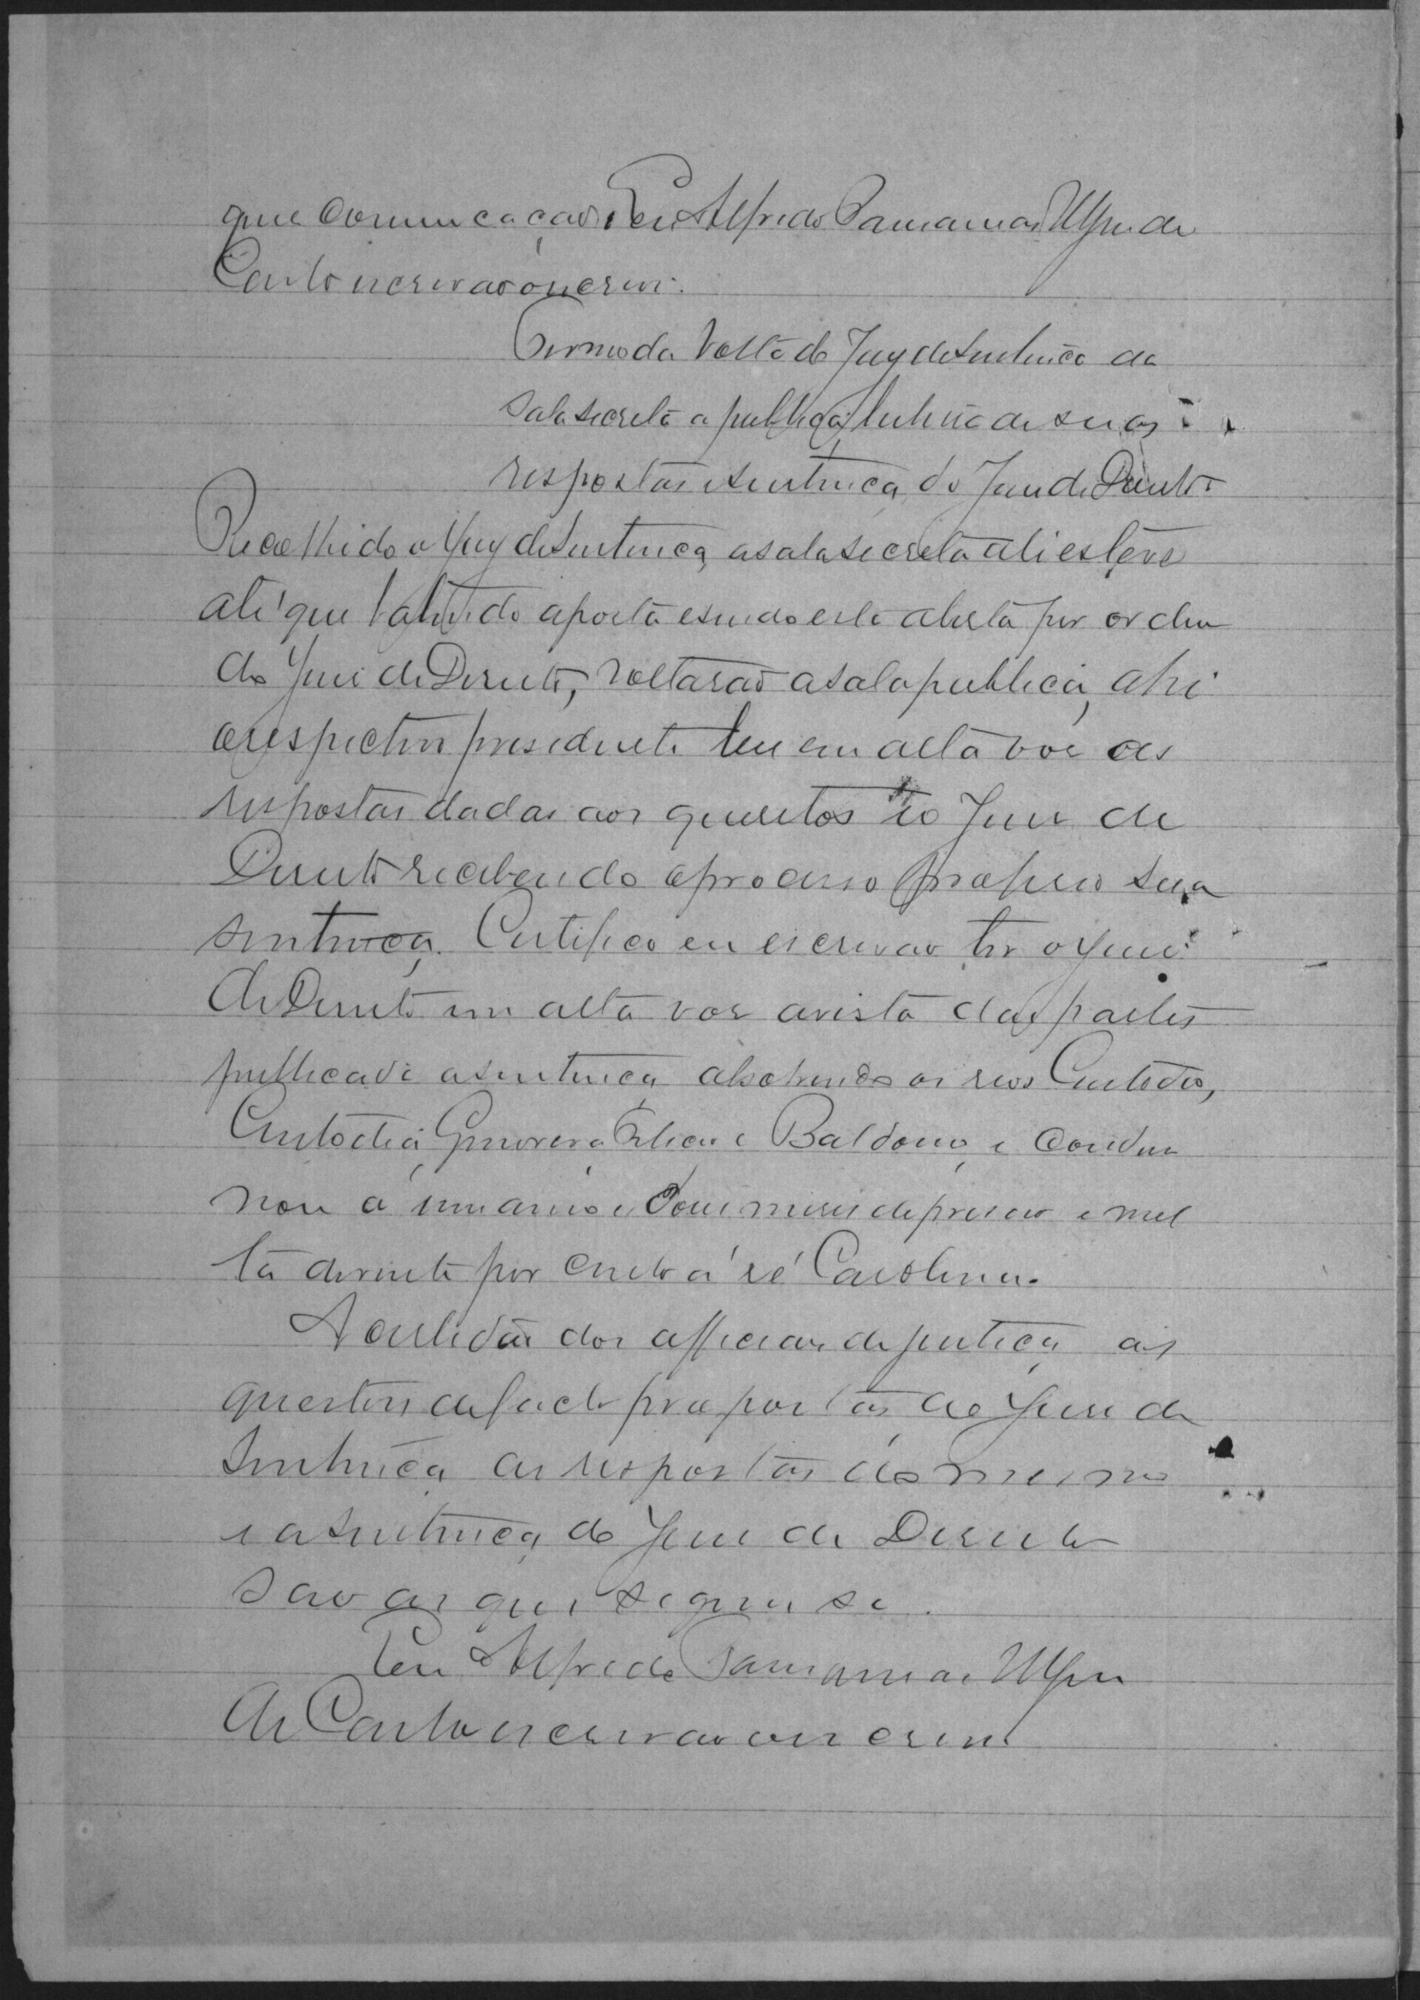 que comunicação. Eu Alfredo
Couto escrivão o escrevi.
Termo da volta do Jury de Sentença da
sala secreta a publica, leitura de suas
respostas e sentença do Juiz de Direito
Recolhido o Jury de Sentença, a sala secreta ali esteve
até que batendo a porta e sendo esta aberta por ordem
do Juiz de Direito, voltarão a sala publica, ahi
o respectivo presidente leu em alta voz as
respostas dadas aos quesitos e o Juiz de
Direito recebendo o processo proferio sua
sentença. Certifico eu escrivão ter o Juiz
de Direito em alta voz a vista das partes
publicado a sentença absolvendo os réos Custodio,
Custodia, Genoveva e Baldoino, e condem
nou a um anno e dous meses de prisão e mul
ta por cento a ré Carolina.
A certidão dos officiaes de justiça as
questões de facto propostas ao Jury de
Sentença as respostas do mesmo
e a sentença do Juiz de Direito
são as que seguem se.
Eu Alfredo
de Couto escrivão que escrevi